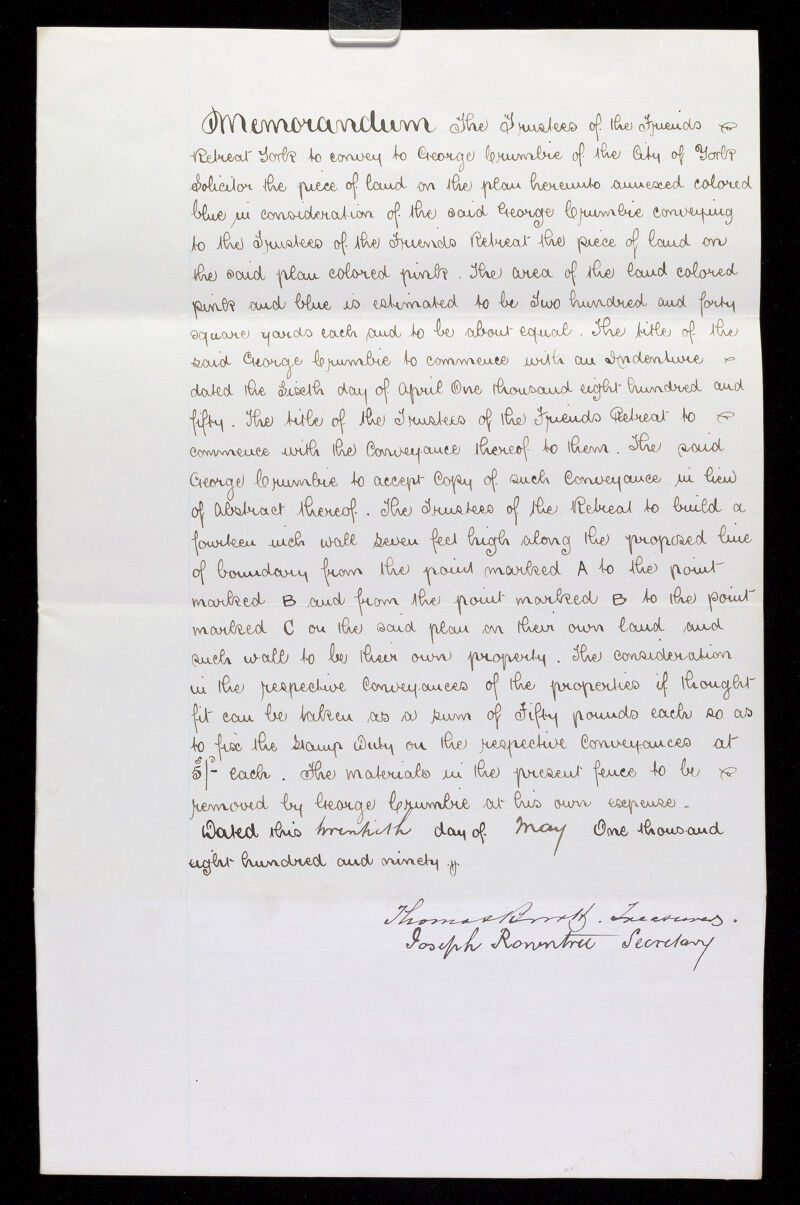 Memorandum The Trustees of the Friends
Retreat York to convey to George Crumbie of the City of York
Solicitor the piece of land on the plan hereunto annexed colored
blue in consideration of the said George Crumbie conveying
to the Trustees of the Friends Retreat the piece of land on
the said plan colored pink. The area of the land colored
pink and blue is estimated to be Two hundred and forty
square yards each and to be about equal. The title of the
said George Crumbie to commence with an Indenture
dated the Sixth day of April One thousand eight hundred and
fifty. The title of the Trustees of the Friends Retreat to
commence with the Conveyance thereof to them. The said
George Crumbie to accept Copy of such Conveyance in lieu
of Abstract thereof. The Trustees of the Retreat to build a
fourteen inch wall seven feet high along the proposed line
of boundary from the point marked A to the point
marked B and from the point marked B to the point
marked C on the said plan on their own land and
such wall to be their own property. The consideration
in the respective Conveyances of the properties if thought
fit can be taken as a sum of Fifty pounds each so as
to fix the Stamp Duty on the respective Conveyances at
5/- each. The materials in the present fence to be
removed by George Crumbie at his own expense.
Dated this twentieth day of May One thousand
eight hundred and ninety
Thomas Treasurer.
Joseph Rowntree Secretary